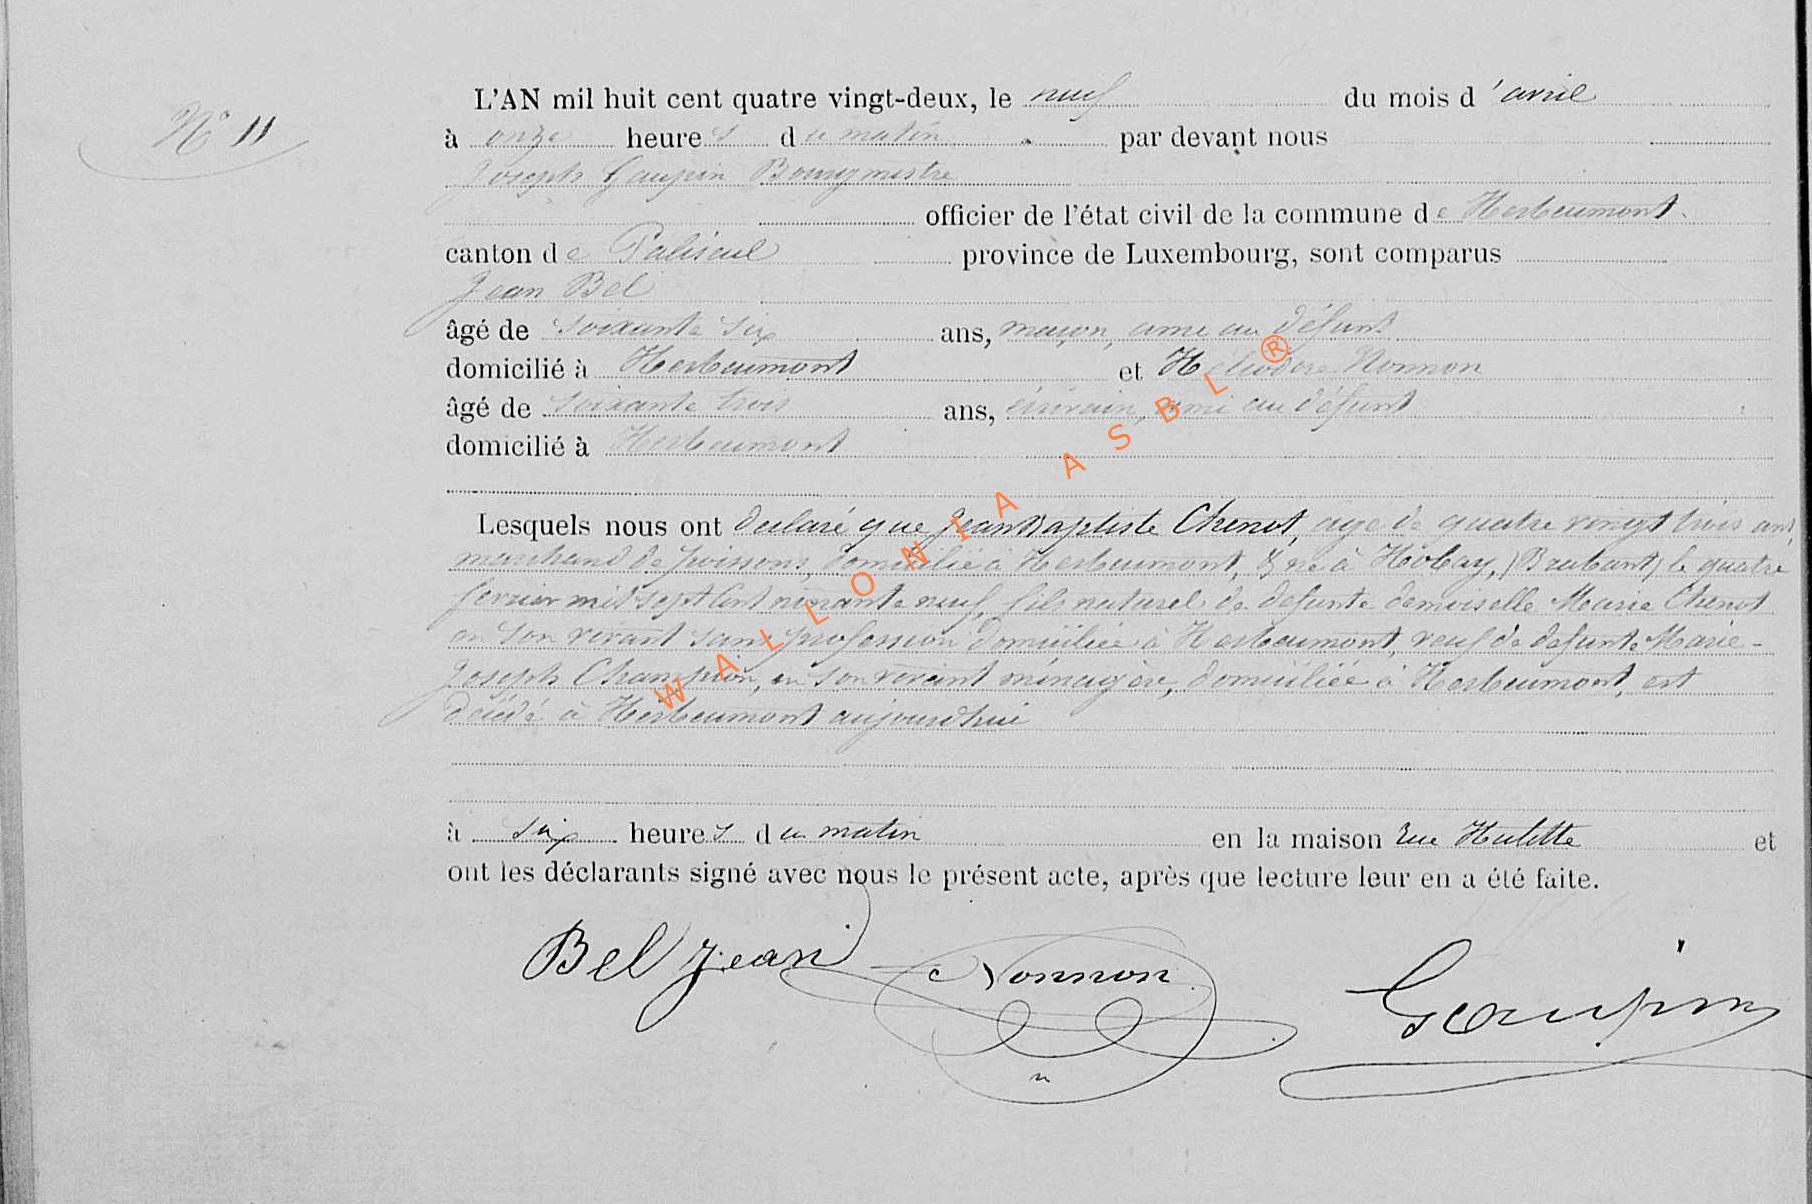 N° 11
L'AN mil huit cent quatre vingt-deux, le neuf du mois d'avril
à onze heures du matin par devant nous
Joseph Gaupin Bourgmestre
officier de l'état civil de la commune de Herbeumont.
canton de Paliseul province de Luxembourg, sont comparus
Jean Bel
âgé de soixante six ans, maçon, ami au défunt
domicilié à Herbeumont et Héliodore Nonnon
âgé de soixante trois ans, écrivain, ami au défunt
domicilié à Herbeumont
Lesquels nous ont declaré que Jean Baptiste Chenot, âgé de quatre vingt trois ans,
marchand de poissons, domicilié à Herbeumont, & né à (Brabant) le quatre
fevrier mil sept cent nonante neuf, fils naturel de defunte demoiselle Marie Chenot
en son vivant sans profession domiciliée à Herbeumont, veuf de defunte Marie-
Joseph Champion, en son vivant ménagère, domiciliée à Herbeumont, est
décédé à Herbeumont aujourd'hui
à six heures du matin en la maison rue Hulette et
ont les déclarants signé avec nous le présent acte, après que lecture leur en a été faite.
Bel Jean Nonnon Gaupin
WALLONIA ASBL ®